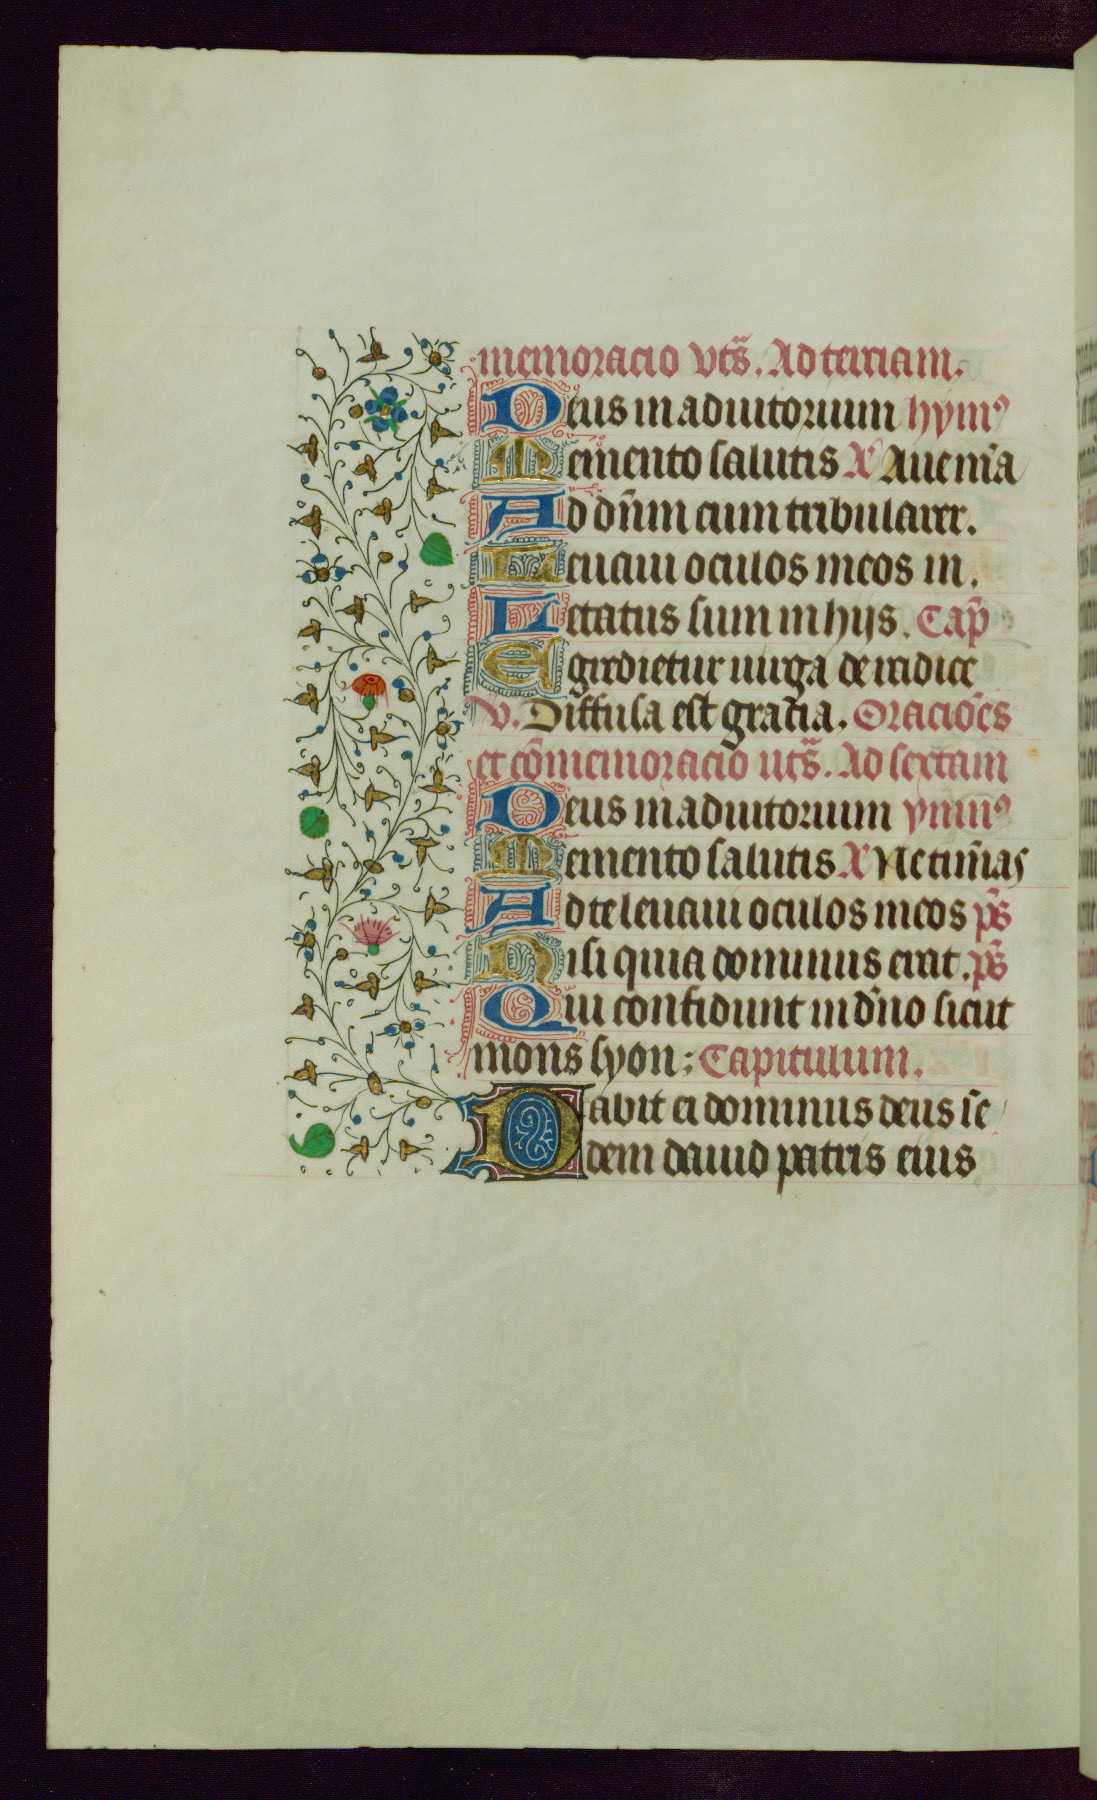 memoracio vts̄. Ad terciam.
Deus in adiutorium hymꝰ
Memento salutis A Aue m̄a
Ad dn̄m cum tribularer.
Leuaui oculos meos in.
Letatus sum in hijs. Cap̄
Egredietur uirga de radice
v. Diffusa est gracia. Oracio̅es
et co̅memoracio uts̄. Ad sextam
Deus in adiutorium ymnꝰ
Memento salutis A Ne tim̄as
Ad te leuaui oculos meos ps̄
Nisi quia dominus erat. ps̄
Qui confidunt in dn̄o sicut
mons syon; Capitulum.
Dabit ei dominus deus se
dem dauid patris eius